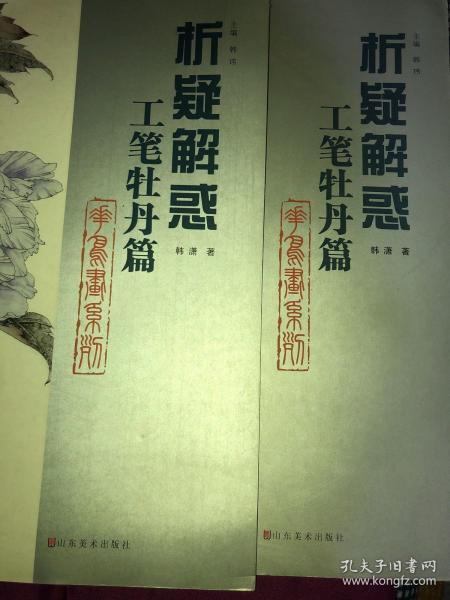 主编 韩玮
析疑解惑
工笔牡丹篇
韩潇 著
华鸟画系列
山东美术出版社
主编 韩玮
析疑解惑
工笔牡丹篇
韩潇 著
华鸟画系列
山东美术出版社
孔夫子旧书网
www.kongfz.com